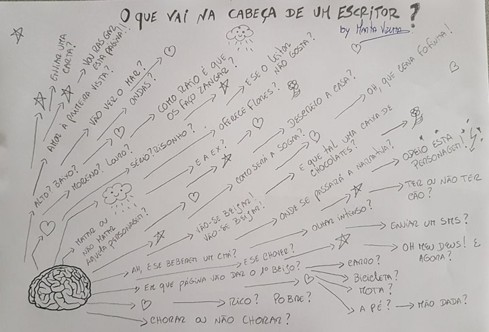 O QUE VAI NA CABEÇA DE UM ESCRITOR?
by Marta
ENVIAR UMA CARTA?
VOU RASGAR ESTA PÁGINA!
AMOR À PRIMEIRA VISTA?
VÃO VER O MAR?
ONDAS?
COMO RAIO É QUE OS FAÇO ZANGAR?
E SE O NÃO GOSTA?
ALTO? BAIXO?
MORENO? LOURO?
SÉRIO? RISONHO?
OFERECE FLORES?
DESENCADEIO A CASA?
OH, QUE CENA FOFINHA!
MATAR OU NÃO MATAR AQUELA PERSONAGEM?
E A EX?
COMO SERIA A SOGRA?
E QUE TAL UMA CAIXA DE CHOCOLATES?
ODEIO ESTA PERSONAGEM!
VÃO-SE BEIJAR? VÃO-SE BEIJAR!
ONDE SE PASSARÁ A NARRATIVA?
TER OU NÃO TER CÃO?
AH, E SE BEBEREM UM CHÁ?
E SE CHOVER?
OLHAR INTENSO?
ENVIAR UM SMS?
EM QUE PÁGINA VÃO DAR O 1º BEIJO?
OH MEU DEUS! E AGORA?
CARRO?
BICICLETA?
MOTA?
RICO? POBRE?
A PÉ?
MÃO DADA?
CHORAR OU NÃO CHORAR?